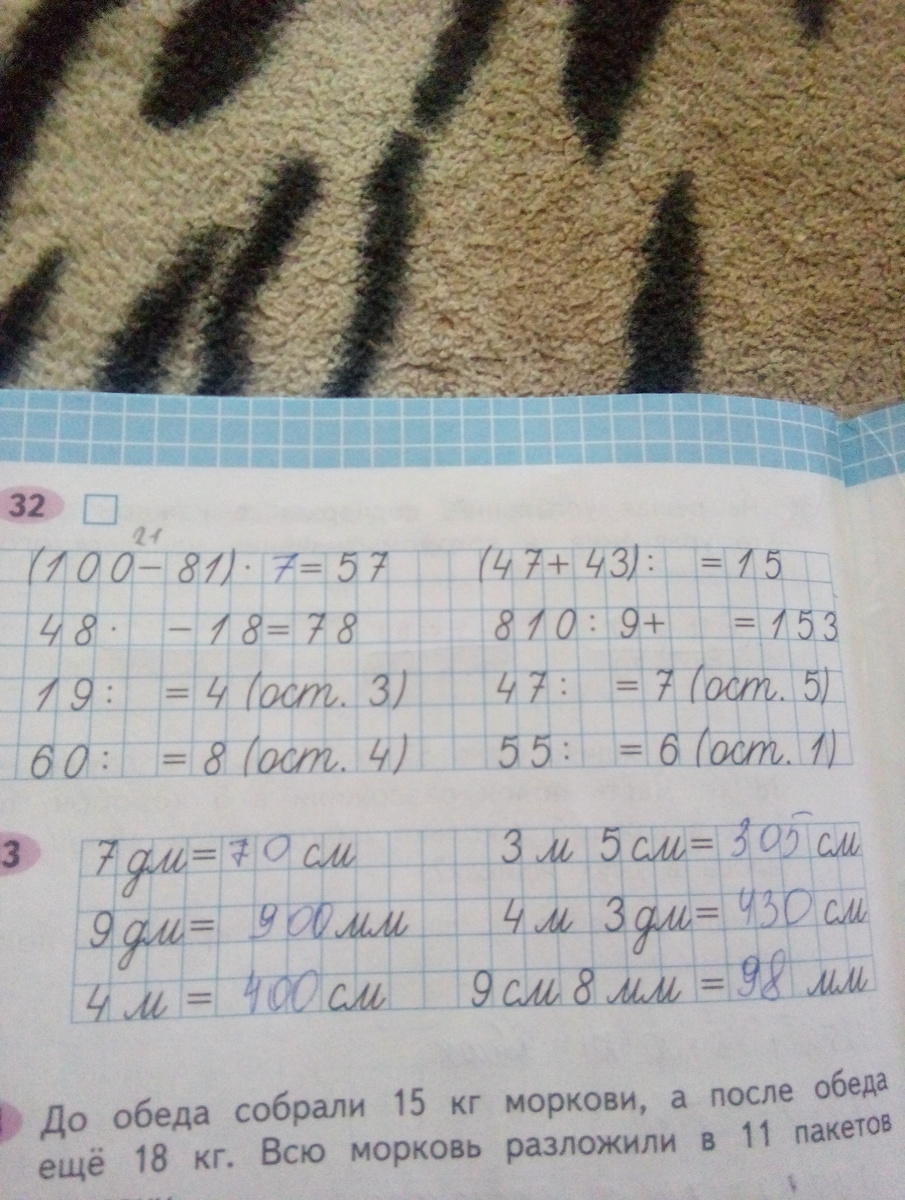 32
21
(100-81)· 7=57 (47+43): =15
48· -18=78 810:9+ =153
19: =4 (ост. 3) 47: =7 (ост. 5)
60: =8 (ост. 4) 55: =6 (ост. 1)
3 7 дм=70 см 3 м 5 см=305 см
9 дм= 900 мм 4 м 3 дм=430 см
4 м = 400 см 9 см 8 мм =98 мм
До обеда собрали 15 кг моркови, а после обеда
ещё 18 кг. Всю морковь разложили в 11 пакетов